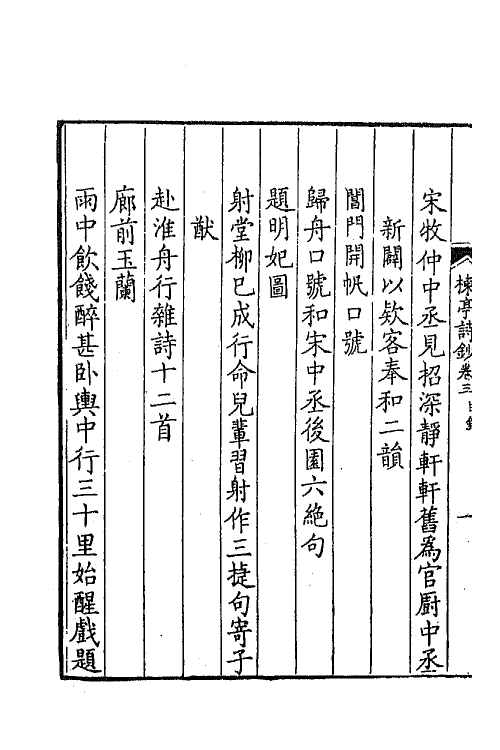 楝亭詩鈔卷三 目錄 一
宋牧仲中丞見招深靜軒軒舊為官厨中丞
新闢以欵客奉和二韻
閶門開帆口號
歸舟口號和宋中丞後園六絶句
題明妃圖
射堂柳已成行命兒輩習射作三捷句寄子
猷
赴淮舟行雜詩十二首
廊前玉蘭
雨中飲餞醉甚卧輿中行三十里始醒戲題